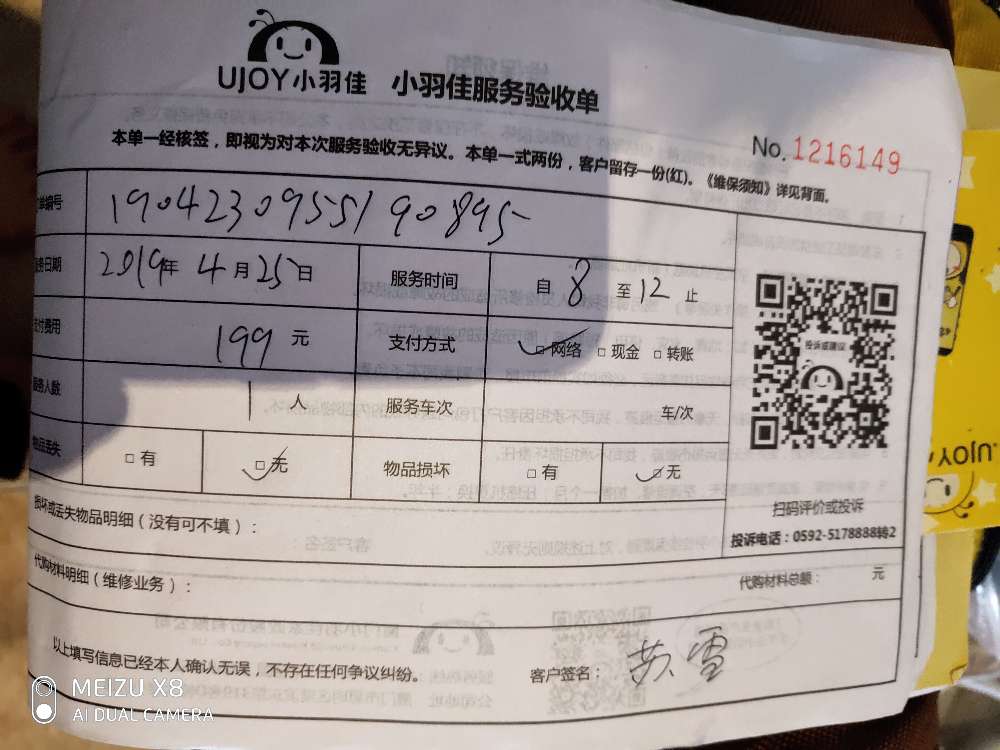 UJOY小羽佳 小羽佳服务验收单
No. 1216149
本单一经核签，即视为对本次服务验收无异议。本单一式两份，客户留存一份(红)。《维保须知》详见背面。
单编号 19042309551 90895
务日期 2019年 4月25日 服务时间 自 8 至 12 止
支付费用 199 元 支付方式 □网络 □现金 □转账
服务人数 1 人 服务车次 车/次
物品丢失 □有 □无 物品损坏 □有 □无
投诉或建议
扫码评价或投诉
投诉电话：0592-5178888转2
损坏或丢失物品明细（没有可不填）：
代购材料明细（维修业务）： 代购材料总额： 元
以上填写信息已经本人确认无误，不存在任何争议纠纷。 客户签名： 黄雪
UJOY
MEIZU X8
AI DUAL CAMERA